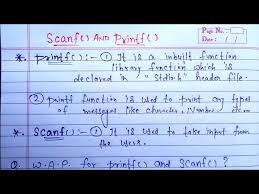 Pap No.:
Date: / /
Scanf() AND Printf()
*. printf():- ① It is a inbuilt function
library function which is
declared in "Stdio.h" header file.
② printf function is used to print any types
of messages like character, Number etc.
*. Scanf():- ① It is used to take input from
the users.
Q. W.A.P. for printf() and Scanf()?